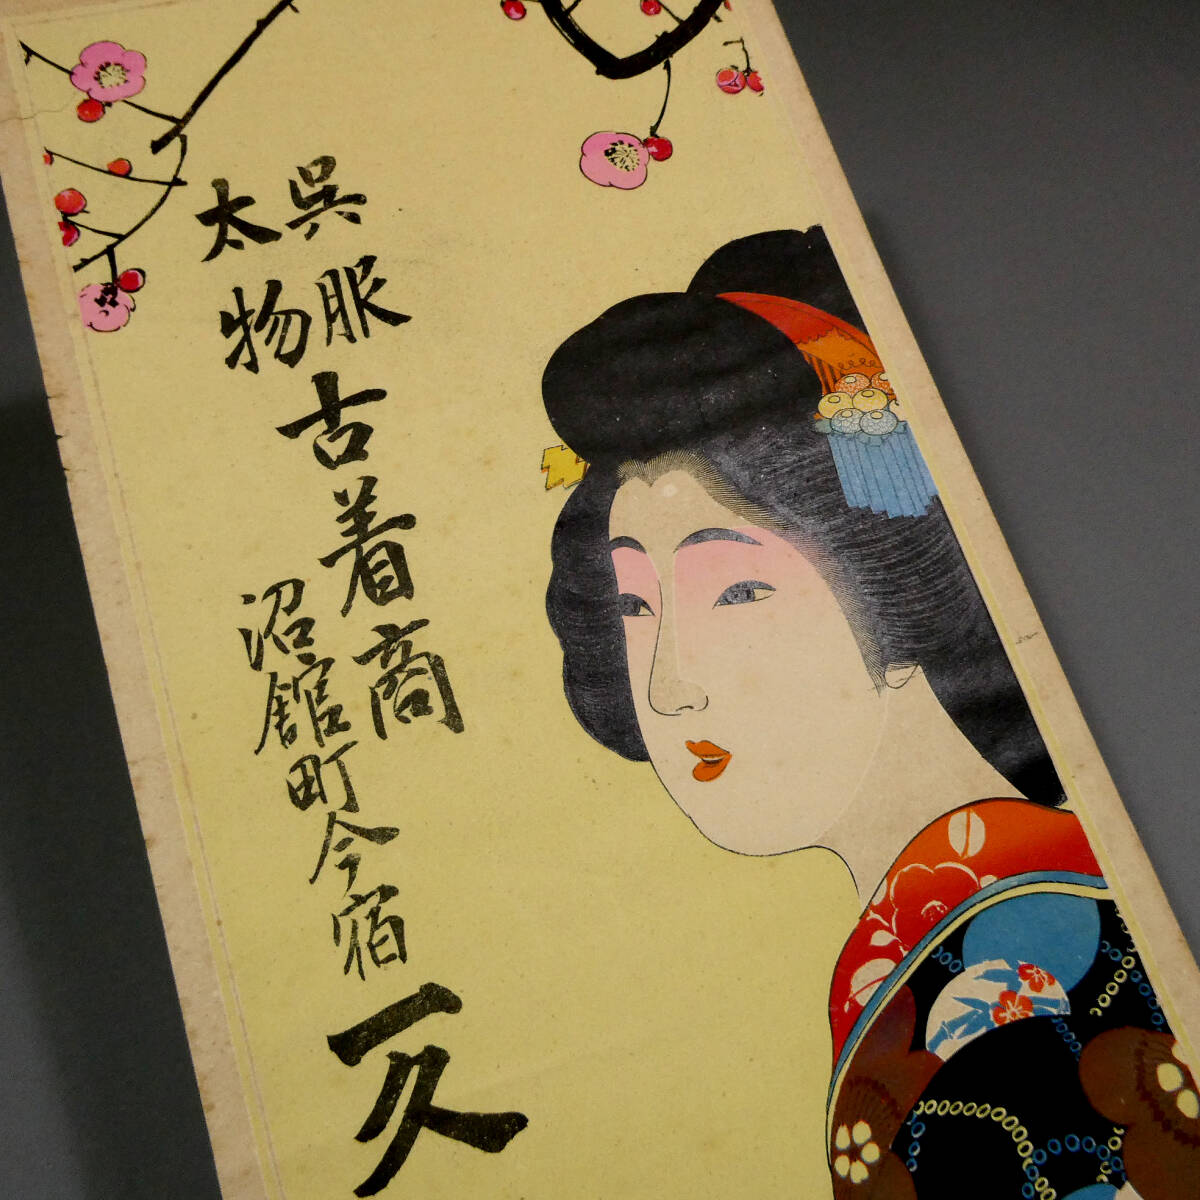 呉服
太物
古着商
沼館町今宿
一久